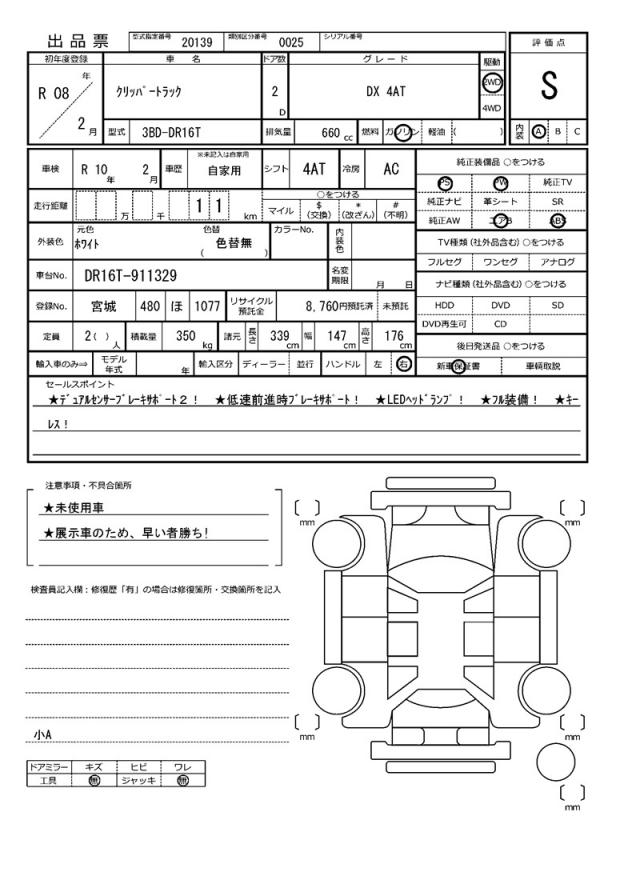 出品票 型式指定番号 20139 類別区分番号 0025 シリアル番号
初年度登録 車名 ドア数 グレード 駆動 評価点
R 08 年 2 月 クリッパートラック 2 D DX 4AT 2WD 4WD S
型式 3BD-DR16T 排気量 660 cc 燃料 ガソリン 軽油 ( ) 内装 A B C
車検 R 10 年 2 月 車歴 ※未記入は自家用 自家用 シフト 4AT 冷房 AC 純正装備品 ○をつける
PS PW 純正TV
走行距離 万 千 1 1 km ○をつける マイル $ (交換) * (改ざん) # (不明) 純正ナビ 革シート SR
純正AW エアB ABS
外装色 元色 ホワイト 色替 色替無 ( ) カラーNo. 内装色 TV種類 (社外品含む) ○をつける
フルセグ ワンセグ アナログ
車台No. DR16T-911329 名変期限 月 日 ナビ種類 (社外品含む) ○をつける
登録No. 宮城 480 ほ 1077 リサイクル預託金 8,760円預託済 未預託 HDD DVD SD
DVD再生可 CD
定員 2( ) 人 積載量 350 kg 諸元 長さ 339 cm 幅 147 cm 高さ 176 cm 後日発送品 ○をつける
輸入車のみ⇒ モデル年式 年 輸入区分 ディーラー 並行 ハンドル 左 右 新車保証書 車輌取説
セールスポイント
★デュアルセンサーブレーキサポート2! ★低速前進時ブレーキサポート! ★LEDヘッドランプ! ★フル装備! ★キー
レス!
注意事項・不具合箇所
★未使用車
★展示車のため、早い者勝ち!
検査員記入欄:修復歴「有」の場合は修復箇所・交換箇所を記入
小A
ドアミラー キズ ヒビ ワレ
工具 無 ジャッキ 無
mm
mm
mm
mm
mm